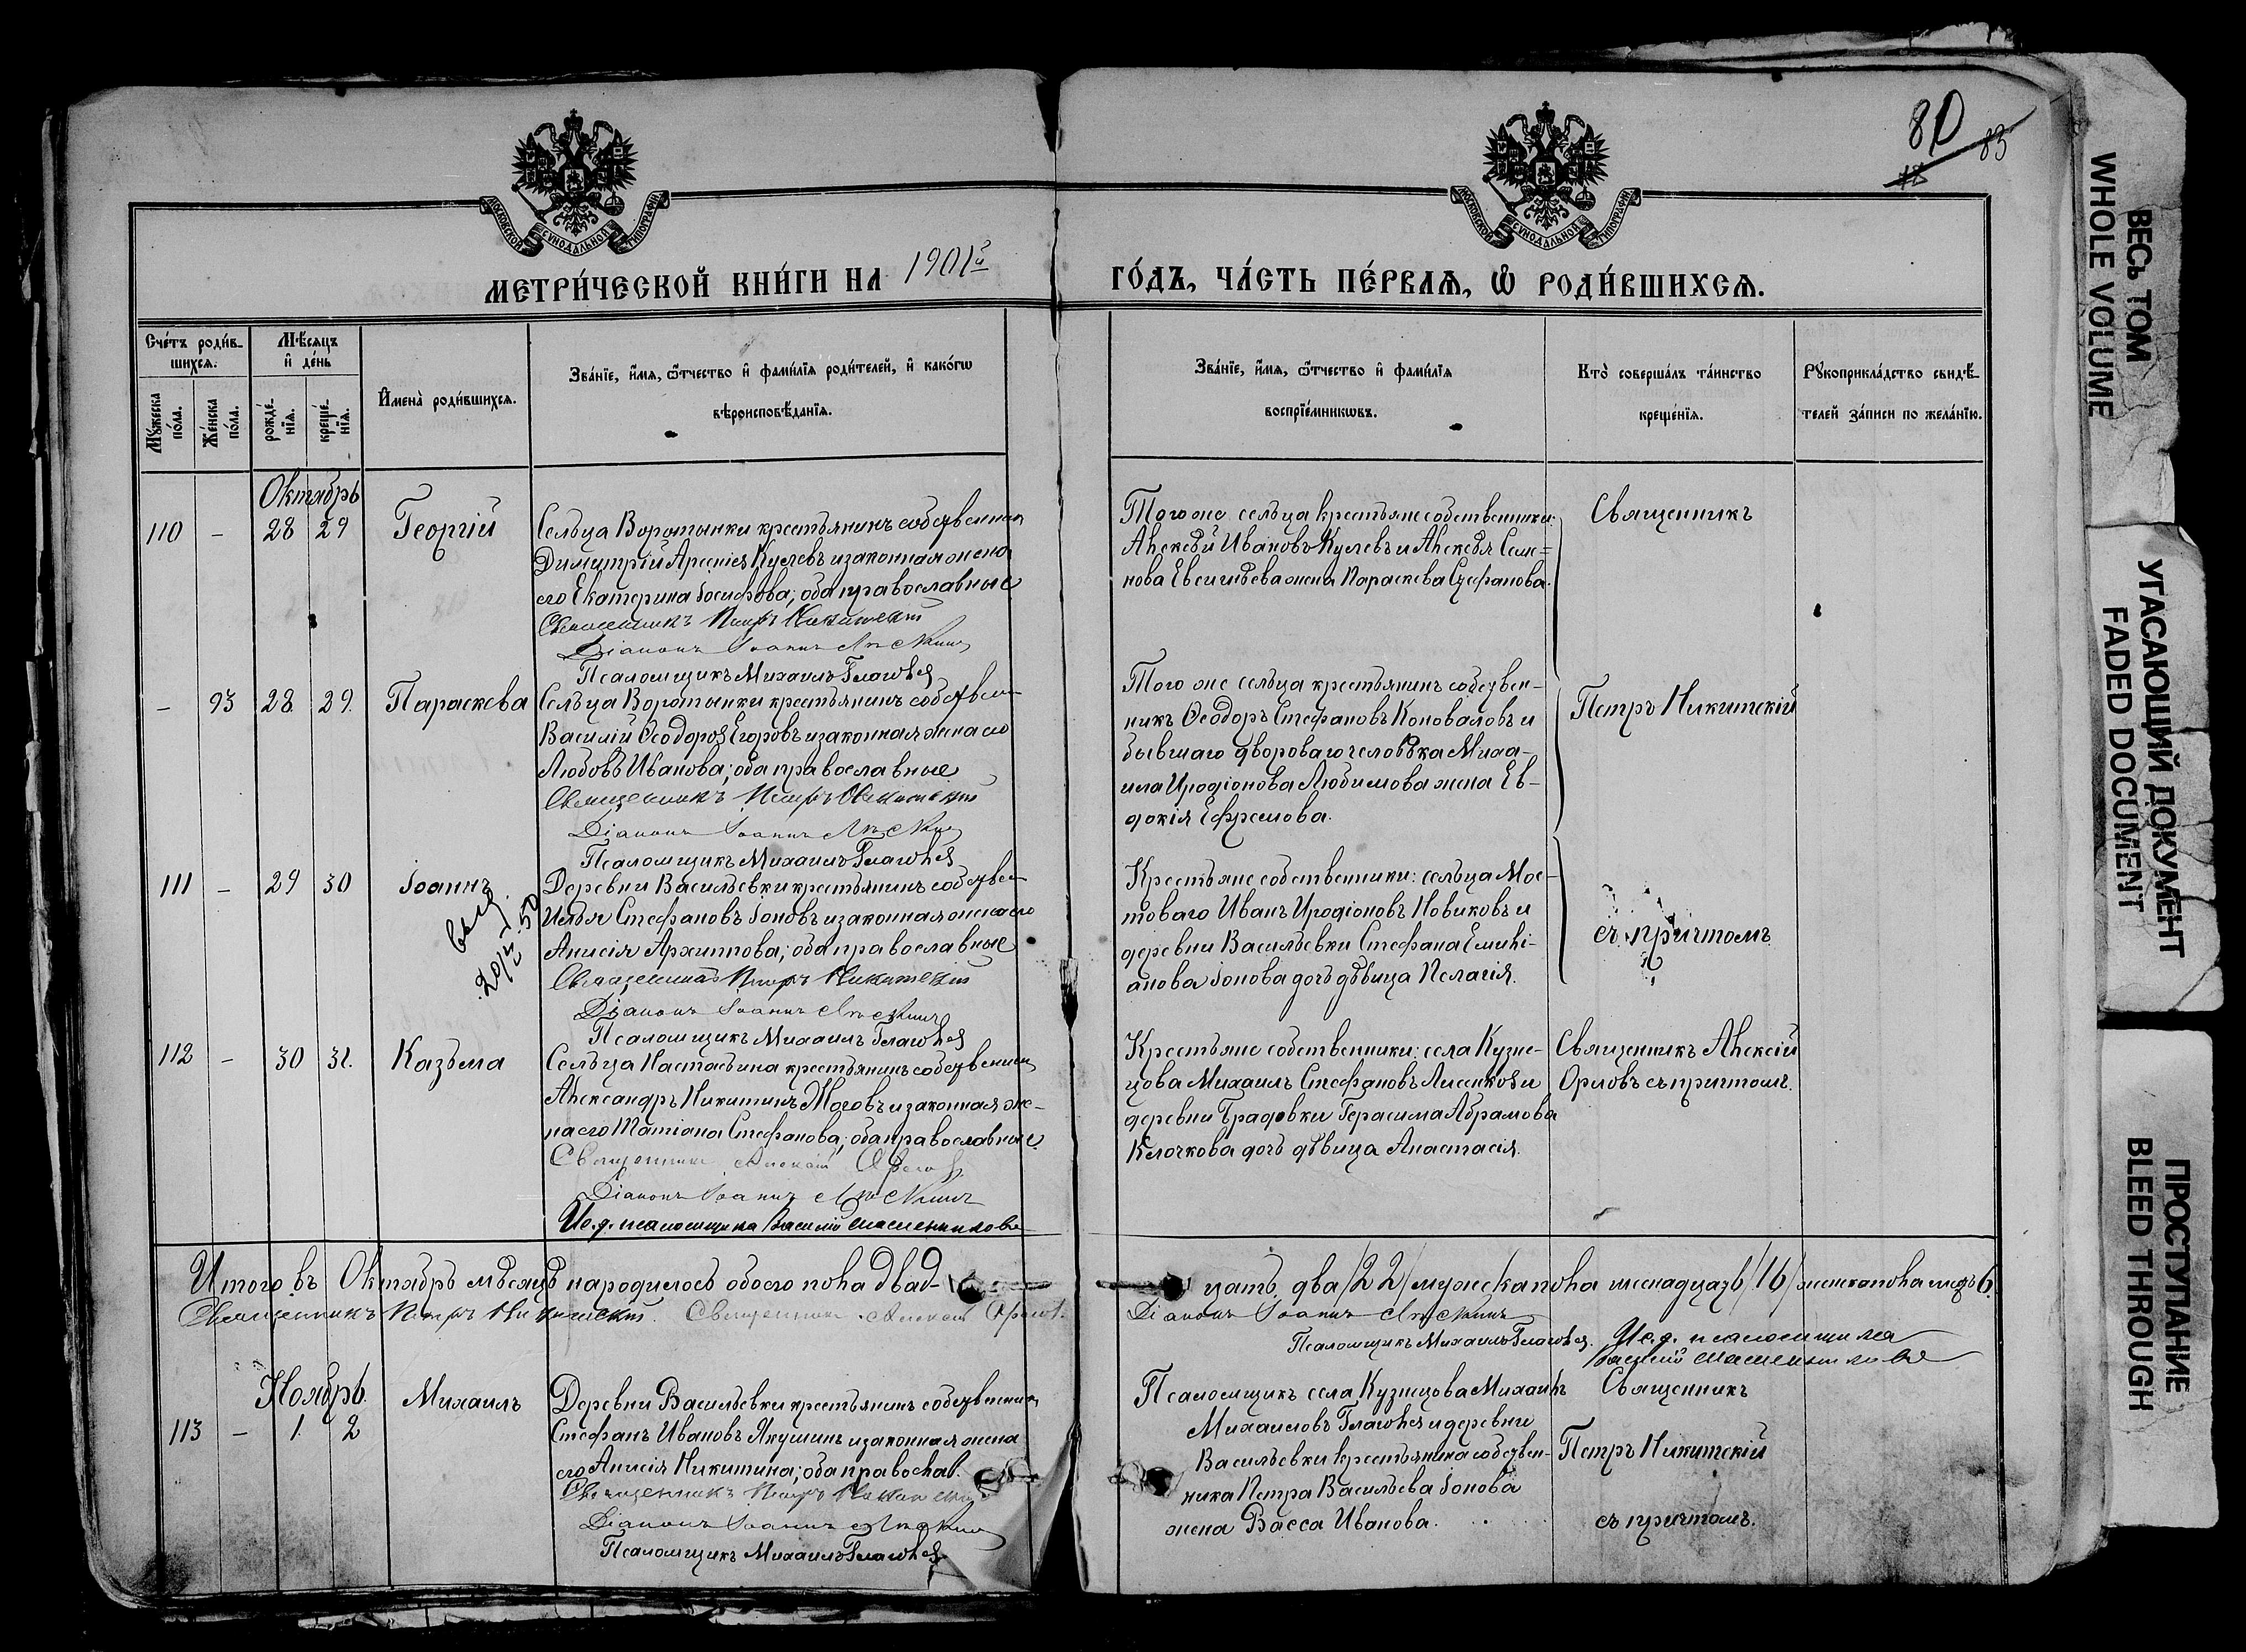 80
83
МОСКОВСКОЙ СУНОДАЛЬНОЙ ТИПОГРАФІИ
МОСКОВСКОЙ СУНОДАЛЬНОЙ ТИПОГРАФІИ
МЕТРИ́ЧЕСКОЙ КНИ́ГИ НА 1901й ГО́ДЪ, ЧА́СТЬ ПЕ́РВАѦ, Ѡ҆ РОДИ́ВШИХСѦ.
Сче́тъ роди́в-
шихсѧ.
Мѣ́сѧцъ
и҆ де́нь
Мꙋ́жеска
по́ла.
Же́нска
по́ла.
рожде́-
нїѧ.
креще́-
нїѧ.
И҆мена̀ роди́вшихсѧ.
Зва́нїе, и҆́мѧ, ѻ҆́тчество и҆ фами́лїѧ роди́телей, и҆ како́гѡ
вѣроисповѣ́данїѧ.
Зва́нїе, и҆́мѧ, ѻ҆́тчество и҆ фами́лїѧ
воспрїе́мникѡвъ.
Кто̀ соверша́лъ та́инство
креще́нїѧ.
Рꙋкоприкла́дство свидѣ́-
телей за́писи по жела́нїю.
Октябрь
110 - 28 29 Георгій
Сельца Воротынки крестьянинъ собственникъ
Димитрій Арсеніев Куслевъ и законная жена
его Екатерина Іосифова; оба православные
Священникъ Петръ Никитскій
Діаконъ Іоаннъ
Псаломщикъ Михаилъ
Того же сельца крестьяне собственники:
Алексѣй Ивановъ Куслевъ и Алексѣя Семе-
нова Евсигнѣева жена Параскева Стефанова.
Священникъ
- 93 28 29. Параскева
Сельца Воротынки крестьянинъ собствен
Василій Ѳеодоров Егоровъ и законная жена его
Любовь Иванова; оба православные
Священникъ Петръ Никитскій
Діаконъ Іоаннъ
Псаломщикъ Михаилъ
Того же сельца крестьянинъ собствен-
никъ Ѳеодоръ Стефановъ Коноваловъ и
бывшаго двороваго человѣка Миха-
ила Иродіонова Любимова жена Ев-
докія Ефремова.
Петръ Никитскій
111 - 29 30 Іоаннъ
выд.
50
Деревни Васильевки крестьянинъ собствен
Илья Стефановъ Іоновъ и законная жена его
Анисія Архиппова; оба православные
Священникъ Петръ Никитскій
Діаконъ Іоаннъ
Псаломщикъ Михаилъ
Крестьяне собственники: сельца Мос-
товаго Иванъ Иродіоновъ Новиковъ и
деревни Васильевки Стефана Емилі-
анова Іонова дочь дѣвица Пелагія.
съ причтомъ.
112 - 30 31. Казьма
Сельца Настасьина крестьянинъ собственник
Александръ Никитинъ Моговъ и законная же-
на его Татіана Стефанова; оба православные
Священникъ Алексій Орлов
Діаконъ Іоаннъ
Ис. д. псаломщика Василій
Крестьяне собственники: села Кузне-
цова Михаилъ Стефановъ Лисенков и
деревни Градовки Герасима Абрамова
Клочкова дочь дѣвица Анастасія.
Священникъ Алексій
Орловъ съ причтомъ.
Итого въ Октябрѣ мѣсяцѣ народилось обоего пола двад-
цать два /22/ мужска пола шеснадцать /16/ женска пола шесть 6.
Священникъ Петръ Никитскій. Священникъ Алексій Орлов.
Діаконъ Іоаннъ
Псаломщикъ Михаилъ
Ис. д. псаломщика
Василій
Ноябрь.
113 - 1. 2 Михаилъ
Деревни Васильевки крестьянинъ собственник
Стефанъ Ивановъ Якушинъ и законная жена
его Анисія Никитина; оба православ.
Священникъ Петръ Никитскій
Діаконъ Іоаннъ
Псаломщикъ Михаилъ
Псаломщикъ села Кузнецова Михаилъ
Михаиловъ и деревни
Васильевки крестьянина собствен-
ника Петра Васильева Іонова
жена Васса Иванова.
Священникъ
Петръ Никитскій
съ причтомъ.
ВЕСЬ ТОМ
WHOLE VOLUME
УГАСАЮЩИЙ ДОКУМЕНТ
FADED DOCUMENT
ПРОСТУПАНИЕ
BLEED THROUGH